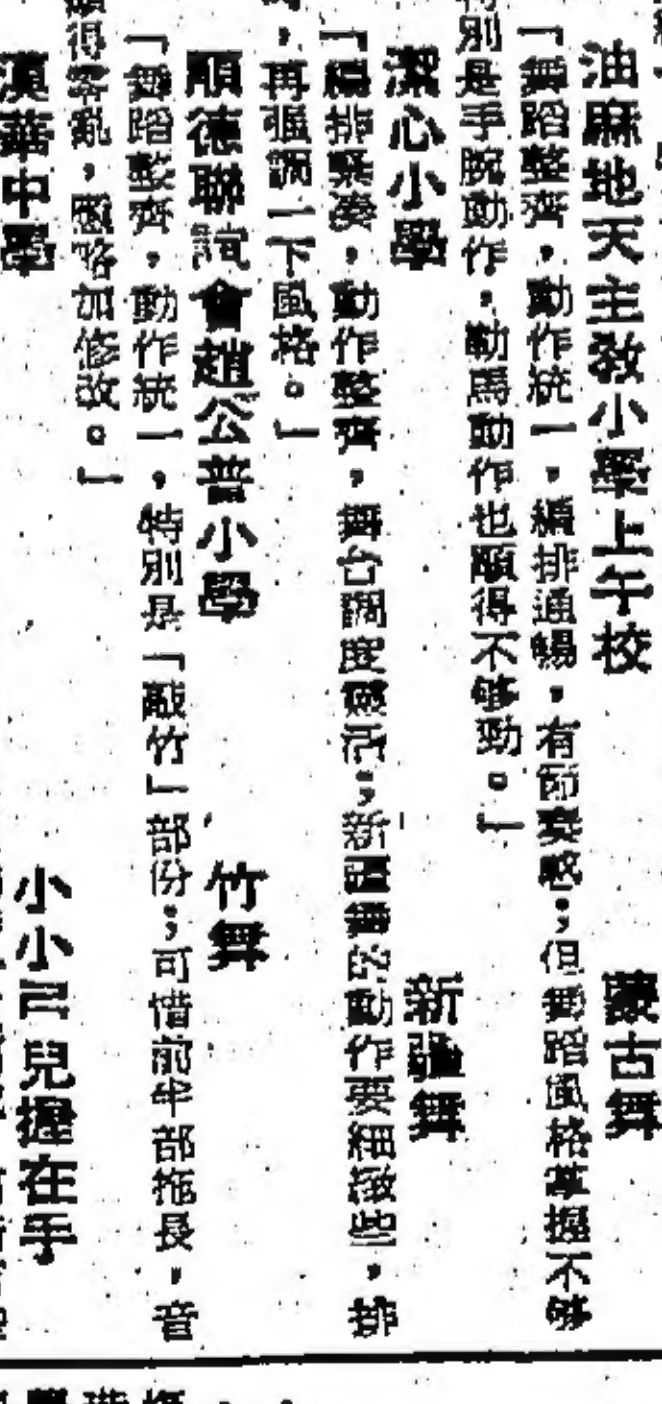 油麻地天主教小學上午校　蒙古舞
「舞蹈整齊，動作統一，編排通暢，有節奏感；但舞蹈風格掌握不够
特別是手腕動作，勒馬動作也顯得不够勁。」
潔心小學　新疆舞
「編排緊湊，動作整齊，舞台調度靈活；新疆舞的動作要細緻些，排
，再強調一下風格。」
順德聯誼會趙公普小學　竹舞
「舞蹈整齊，動作統一，特別是「敲竹」部份；可惜前半部拖長，音
顯得零亂，應略加修改。」
漢華中學　小小弓兒握在手